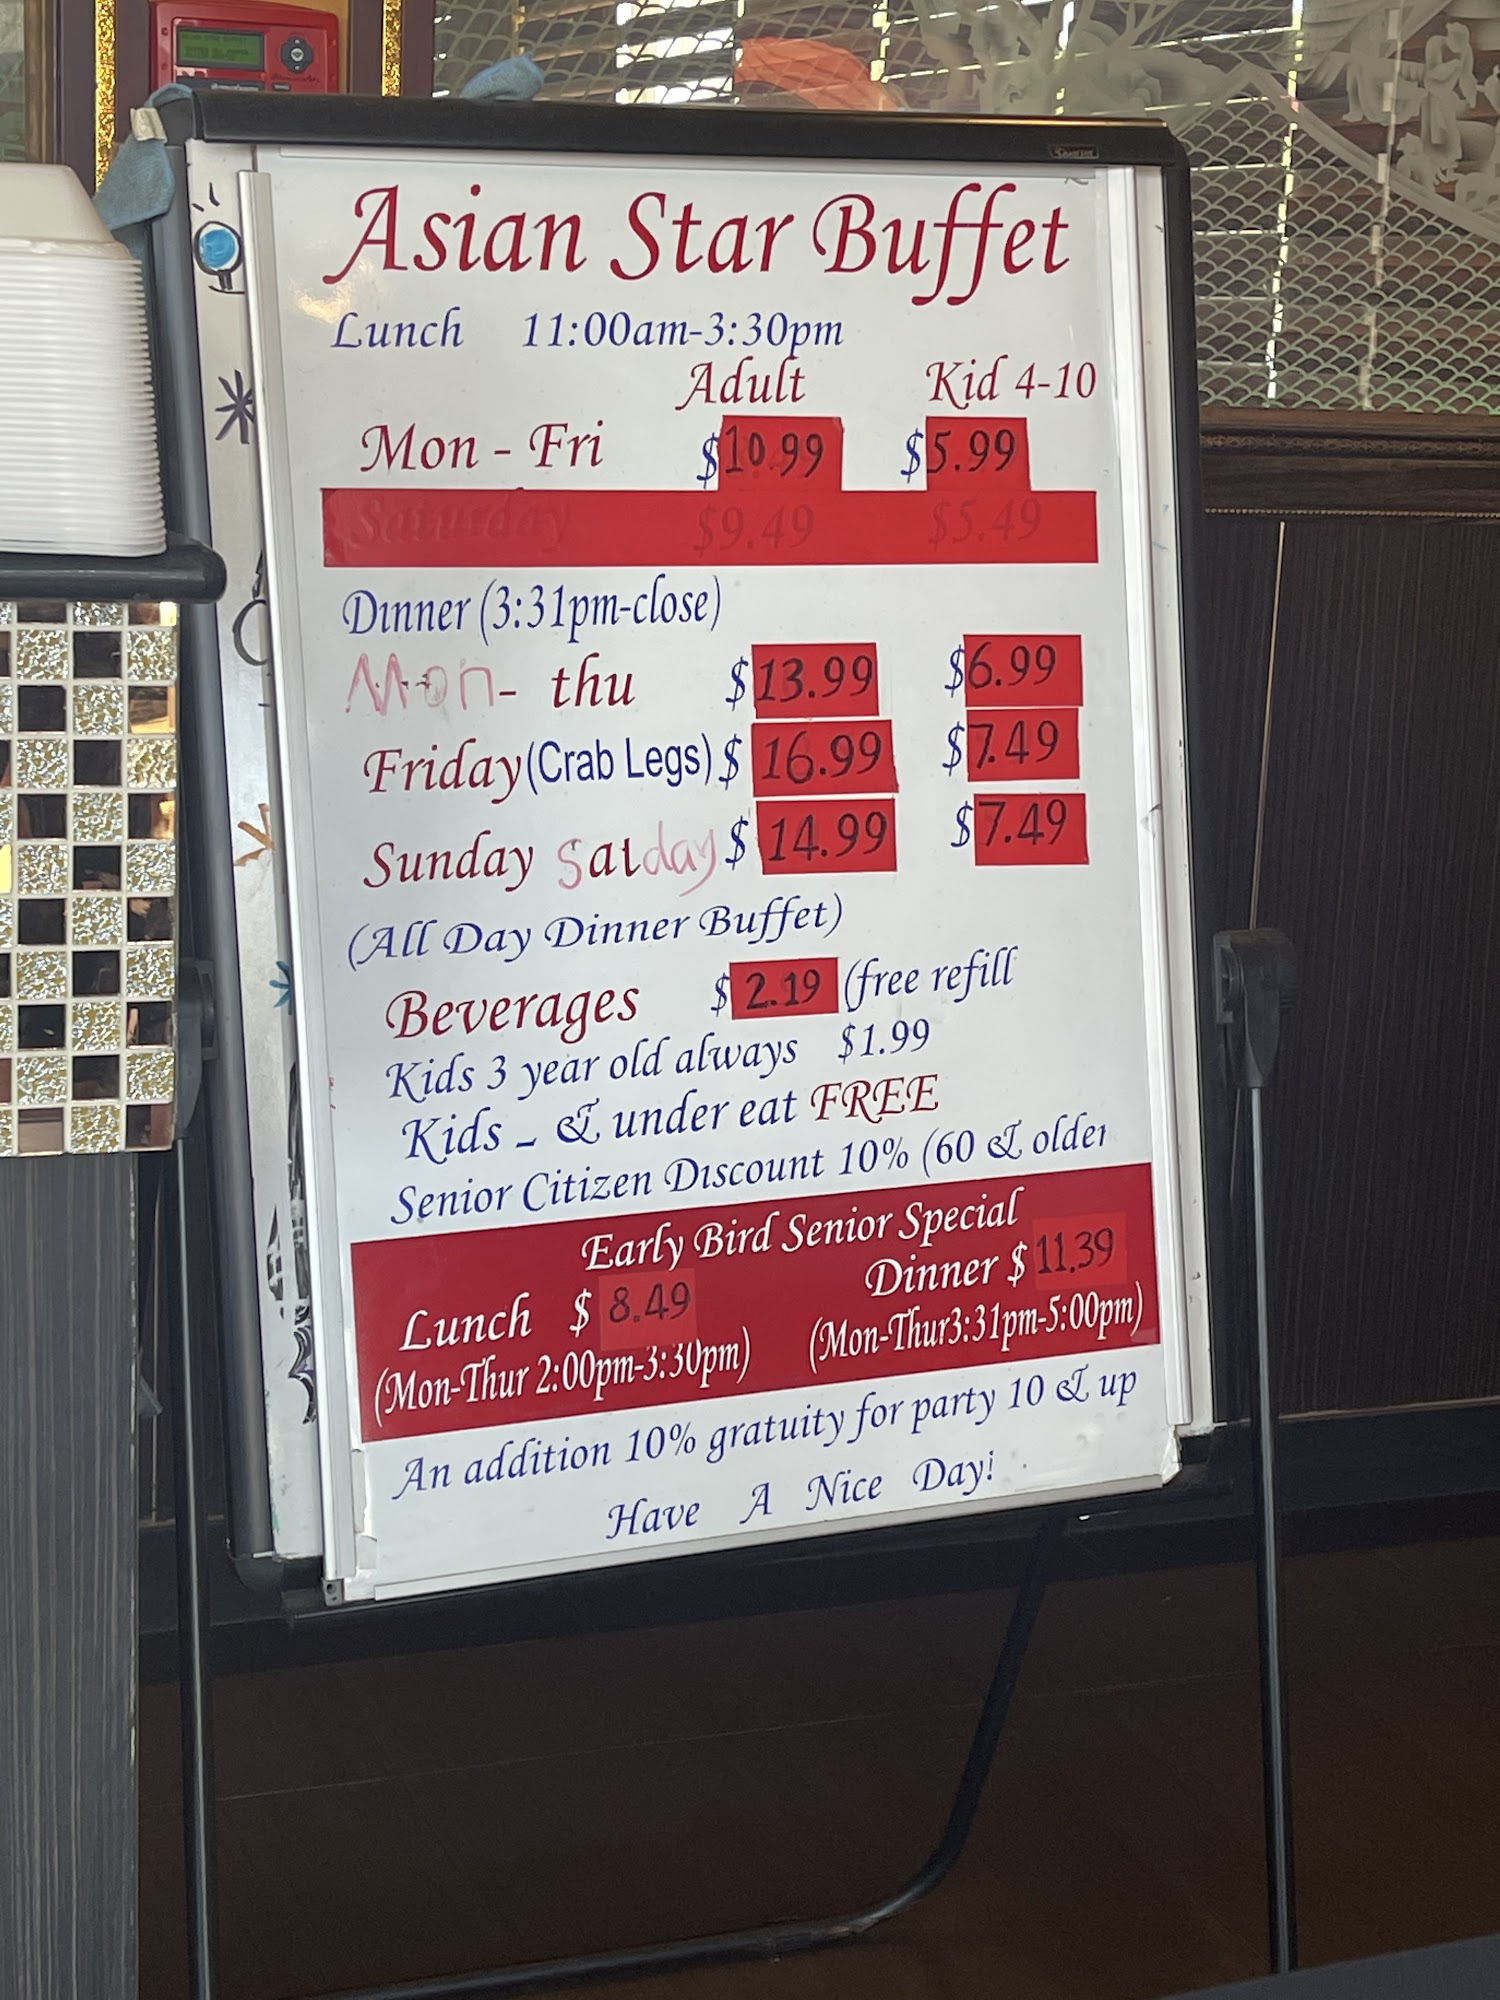 Asian Star Buffet
Lunch 11:00am-3:30pm
Adult Kid 4-10
Mon - Fri $10.99 $5.99
Saturday $9.49 $5.49
Dinner (3:31pm-close)
Mon- thu $13.99 $6.99
Friday (Crab Legs) $16.99 $7.49
Sunday Satday $14.99 $7.49
(All Day Dinner Buffet)
Beverages $2.19 (free refill
Kids 3 year old always $1.99
Kids - & under eat FREE
Senior Citizen Discount 10% (60 & older
Early Bird Senior Special
Lunch $8.49 Dinner $11.39
(Mon-Thur 2:00pm-3:30pm) (Mon-Thur3:31pm-5:00pm)
An addition 10% gratuity for party 10 & up
Have A Nice Day!